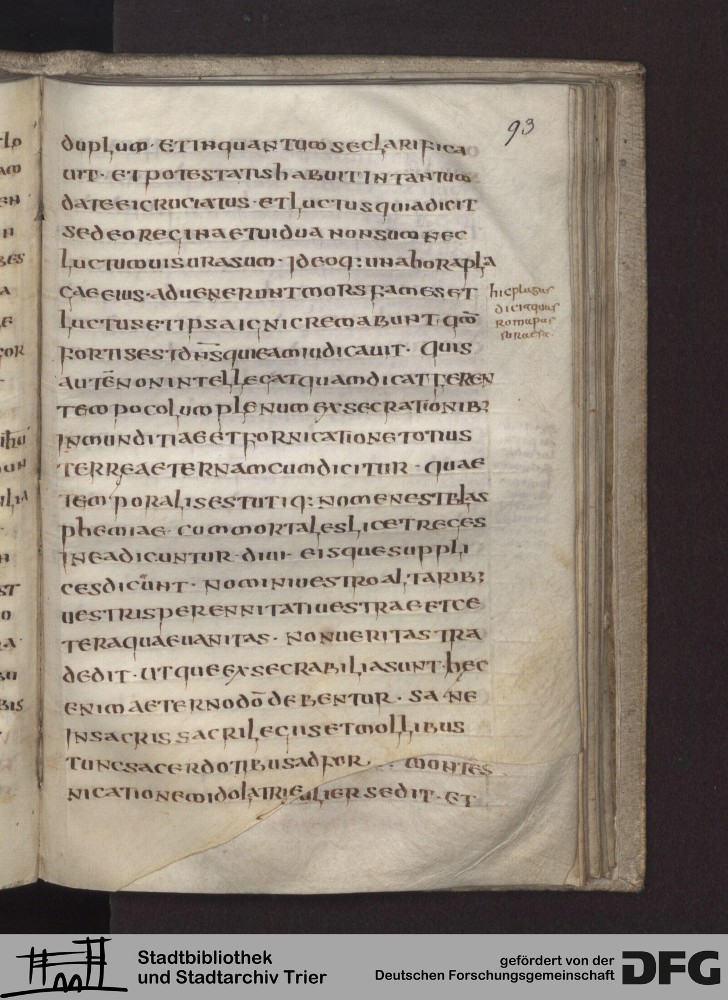 93
duplum · et in quantum se clarifica
uit · et potestatis habuit in tantum
date ei cruciatus · et luctus quia dicit
sedeo regina et uidua non sum nec
luctum uisura sum · ideoq: una hora pla
gae eius · aduenerunt mors fames et
luctus et ipsa igni cremabunt · qm̄
fortis est d̄n̄s qui eam iudicauit · quis
autē non intellegat quam dicat feren
tem poculum plenum exsecrationib;
inmunditiae et fornicatione totius
terre aeternam cum dicitur · quae
temporalis est utiq: nomen est blas
phemiae · cum mortales licet reges
in ea dicuntur · diui · eisque suppli
ces dicunt · nomini uestro altarib;
uestris perennitati uestrae et ce
tera quae uanitas · non ueritas tra
dedit · ut que exsecrabilia sunt · hec
enim aeterno dō debentur · sane
in sacris sacrilegiis et mollibus
tunc sacerdotibus ad for · montes
nicationem idolatriae
lier sedit · et
hic plagas
dicit quas
roma pas
sura est
Stadtbibliothek
und Stadtarchiv Trier
gefördert von der
Deutschen Forschungsgemeinschaft
DFG